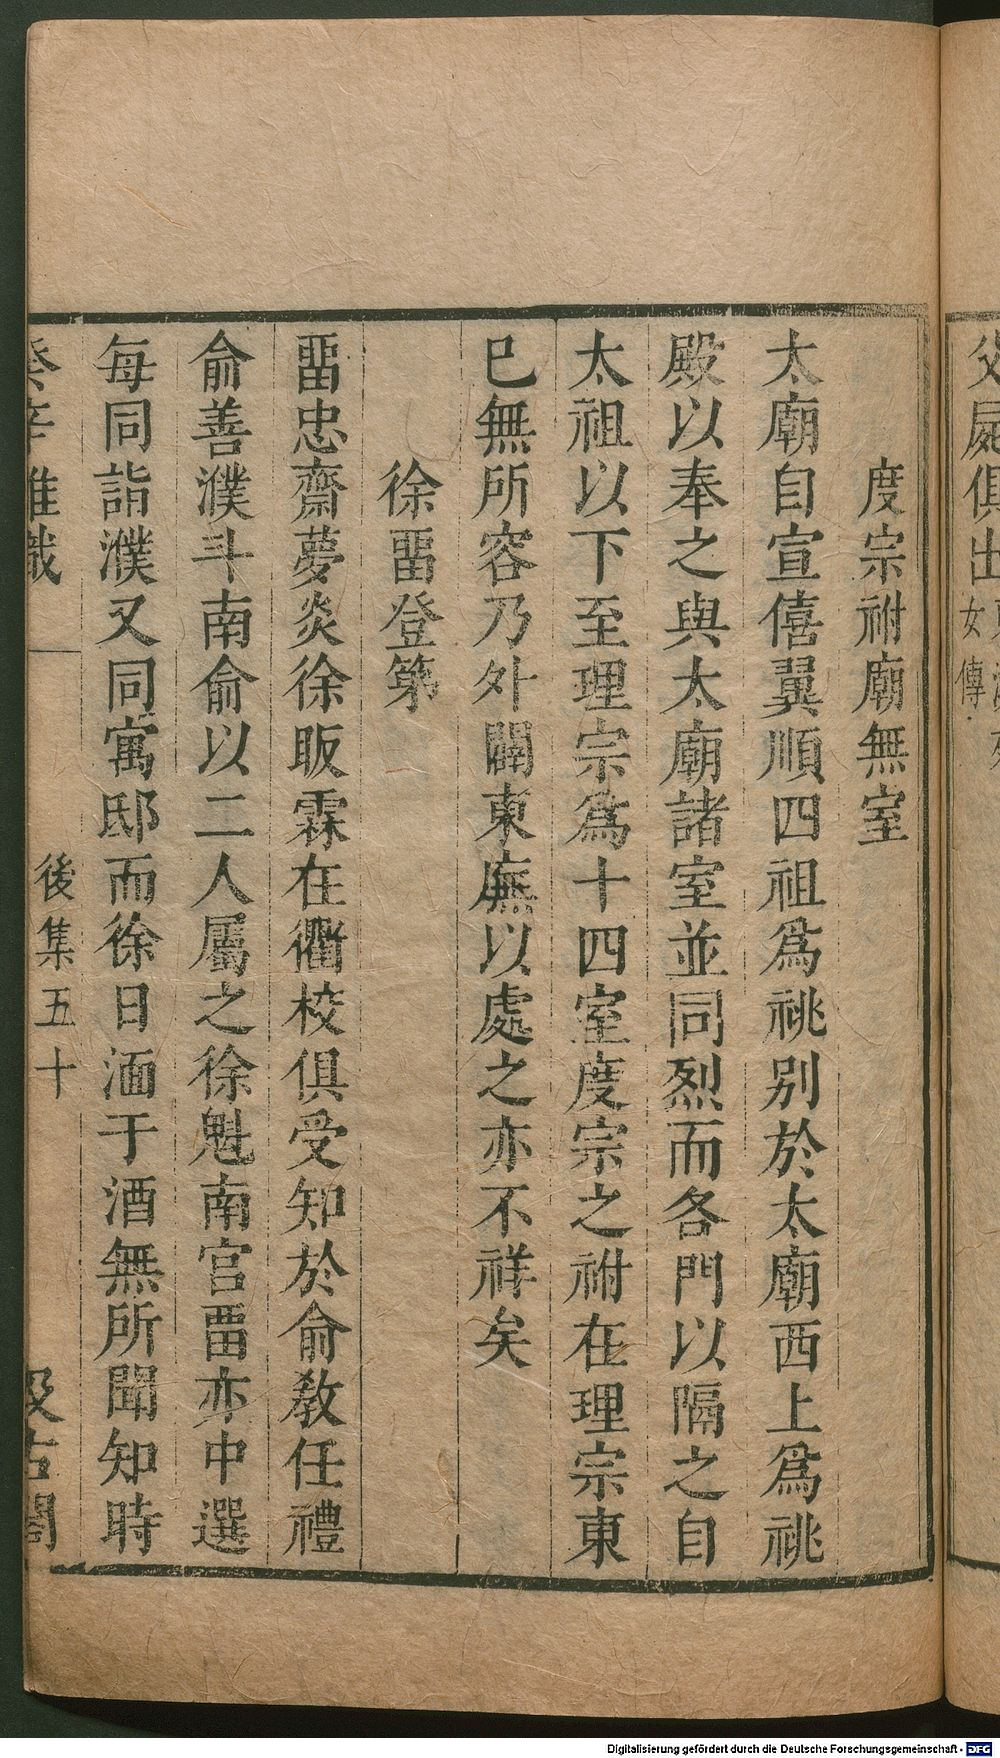 父屍俱出
女傳
度宗祔廟無室
太廟自宣僖翼順四祖爲祧別於太廟西上爲祧
殿以奉之與太廟諸室並同烈而各門以隔之自
太祖以下至理宗爲十四室度宗之祔在理宗東
巳無所容乃外闢東廡以處之亦不祥矣
徐畱登第
畱忠齋夢炎徐畈霖在衢校俱受知於俞教任禮
俞善濮斗南俞以二人屬之徐魁南宫畱亦中選
每同詣濮又同寓邸而徐日湎于酒無所聞知時
癸辛雜識
後集五十
汲古閣
Digitalisierung gefördert durch die Deutsche Forschungsgemeinschaft - DFG